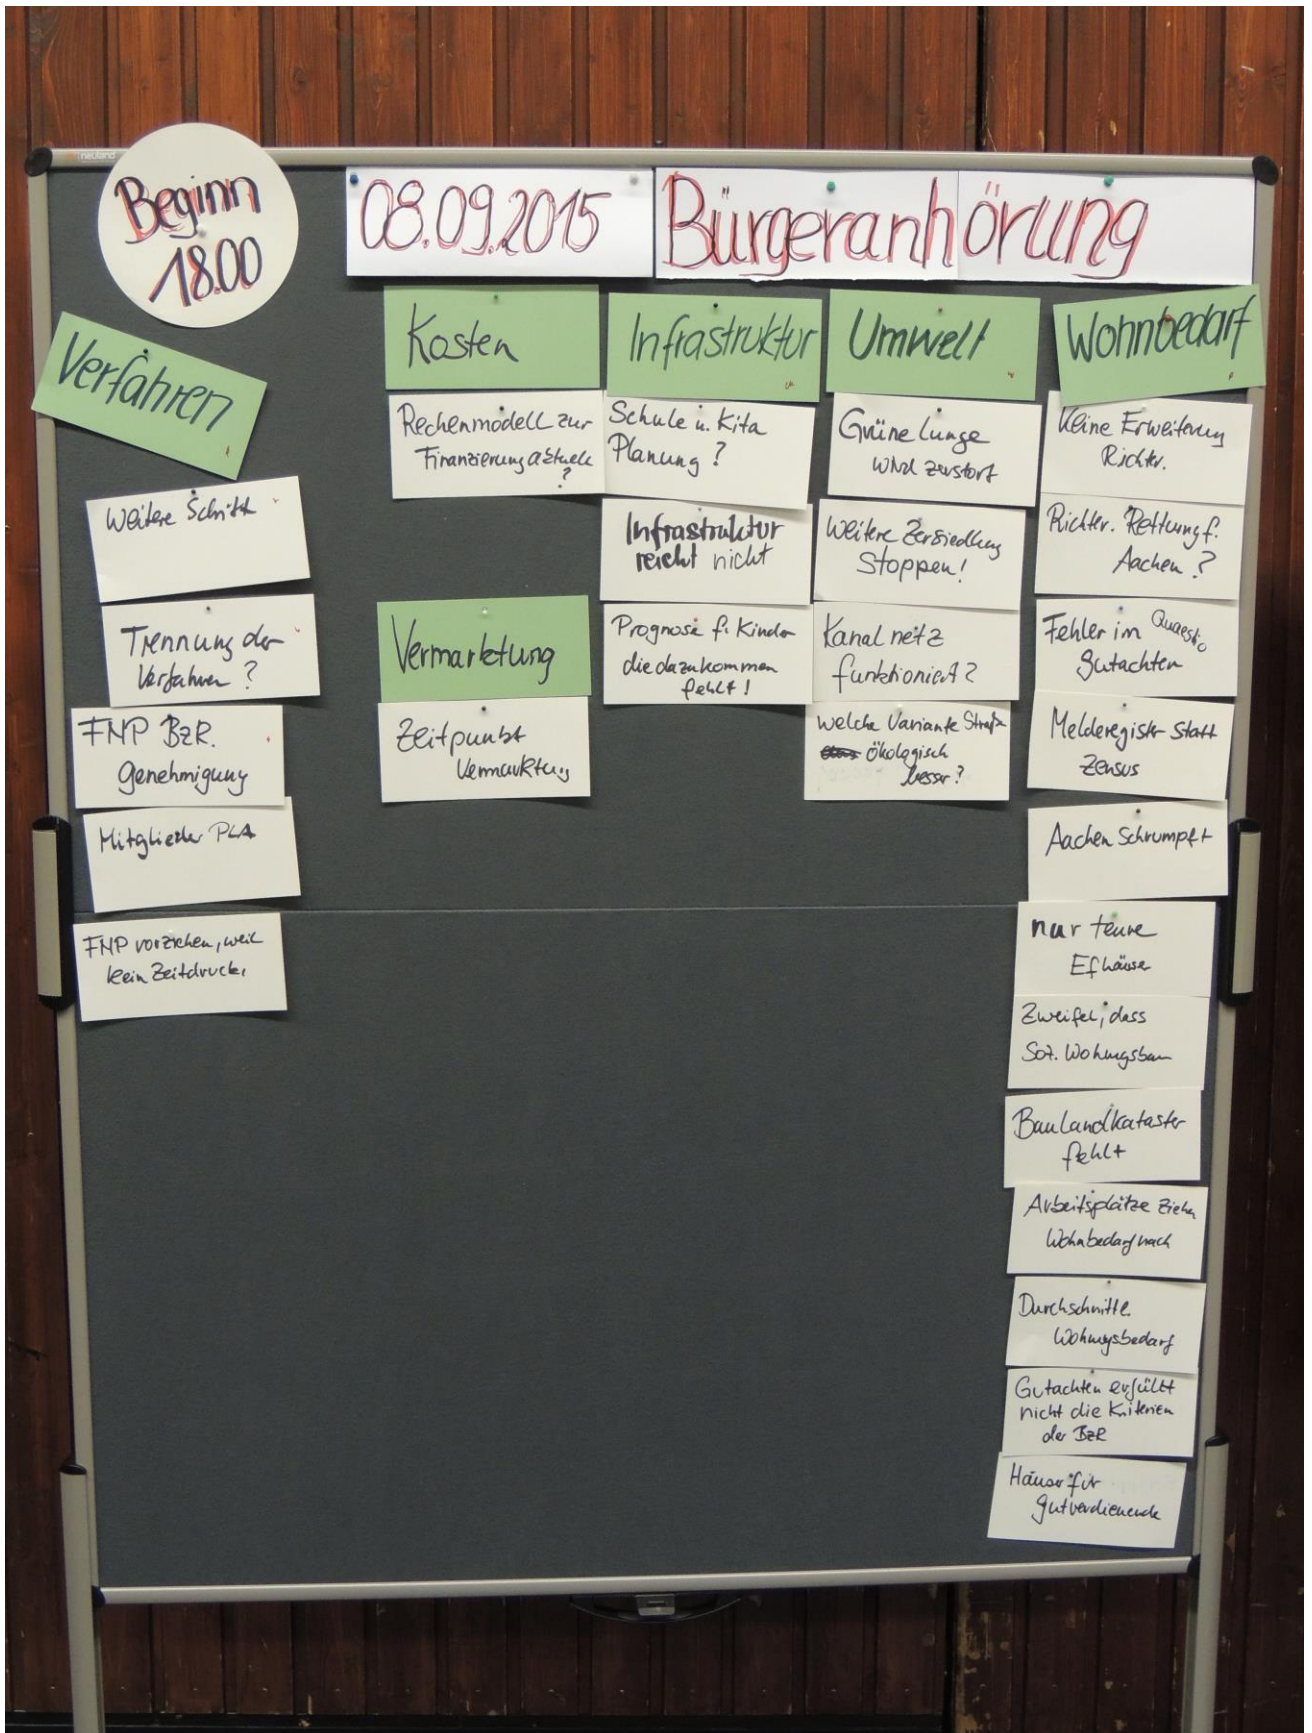 neuland
Beginn
18.00
08.09.2015
Bürgeranhörung
Verfahren
Weitere Schritte
Trennung der
Verfahren ?
FNP BzR.
Genehmigung
Mitglieder PLA
FNP vorziehen, weil
kein Zeitdruck.
Kosten
Rechenmodell zur
Finanzierung aktuell
?
Vermarktung
Zeitpunkt
Vermarktung
Infrastruktur
Schule u. Kita
Planung ?
Infrastruktur
reicht nicht
Prognose f. Kinder
die dazukommen
fehlt !
Umwelt
Grüne Lunge
wird zerstört
Weitere Zersiedlung
Stoppen!
Kanalnetz
funktioniert?
Welche Variante Straße
ökologisch
besser ?
Wohnbedarf
Keine Erweiterung
Richter.
Richter. Rettung f.
Aachen ?
Fehler im Quaestio
gutachten
Melderegister statt
Zensus
Aachen schrumpft
nur teure
Efhäuser
Zweifel, dass
Soz. Wohnungsbau
Baulandkataster
fehlt
Arbeitsplätze ziehen
Wohnbedarf nach
Durchschnittl.
Wohnungsbedarf
Gutachten erfüllt
nicht die Kriterien
der BzR
Häuser für
gutverdienende